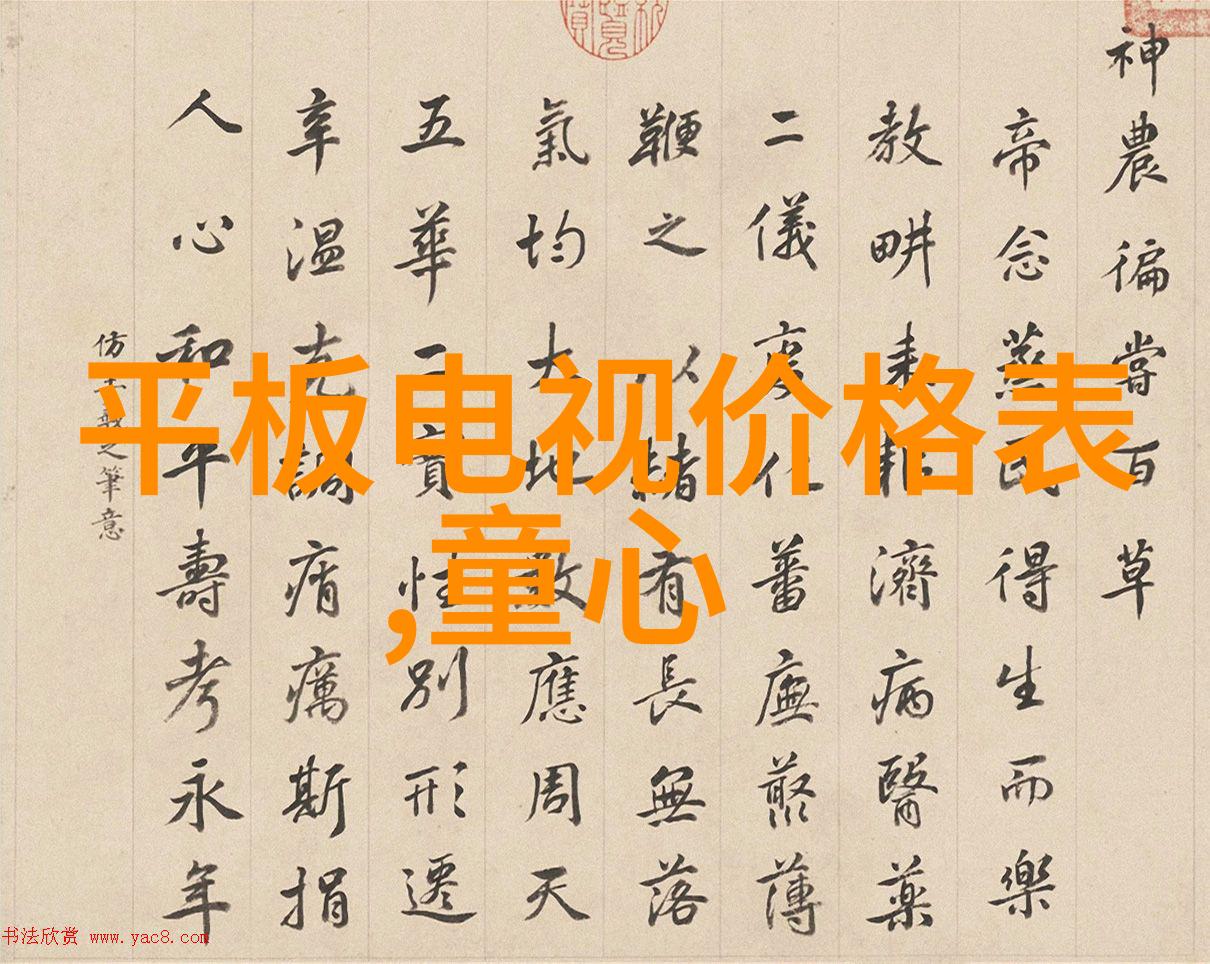 神農徧嘗百草
帝念蒸民得生而樂
教畊耒耜濟病醫藥
二儀化蕃廡藂薄
鞭之以赭有長無落
氣均大地數應周天
五華實性別形遷
辛温克調痟癘斯捐
人心和平壽考永年
仿之筆意
平板电视价格表
,童心
书法欣赏 www.yac8.com